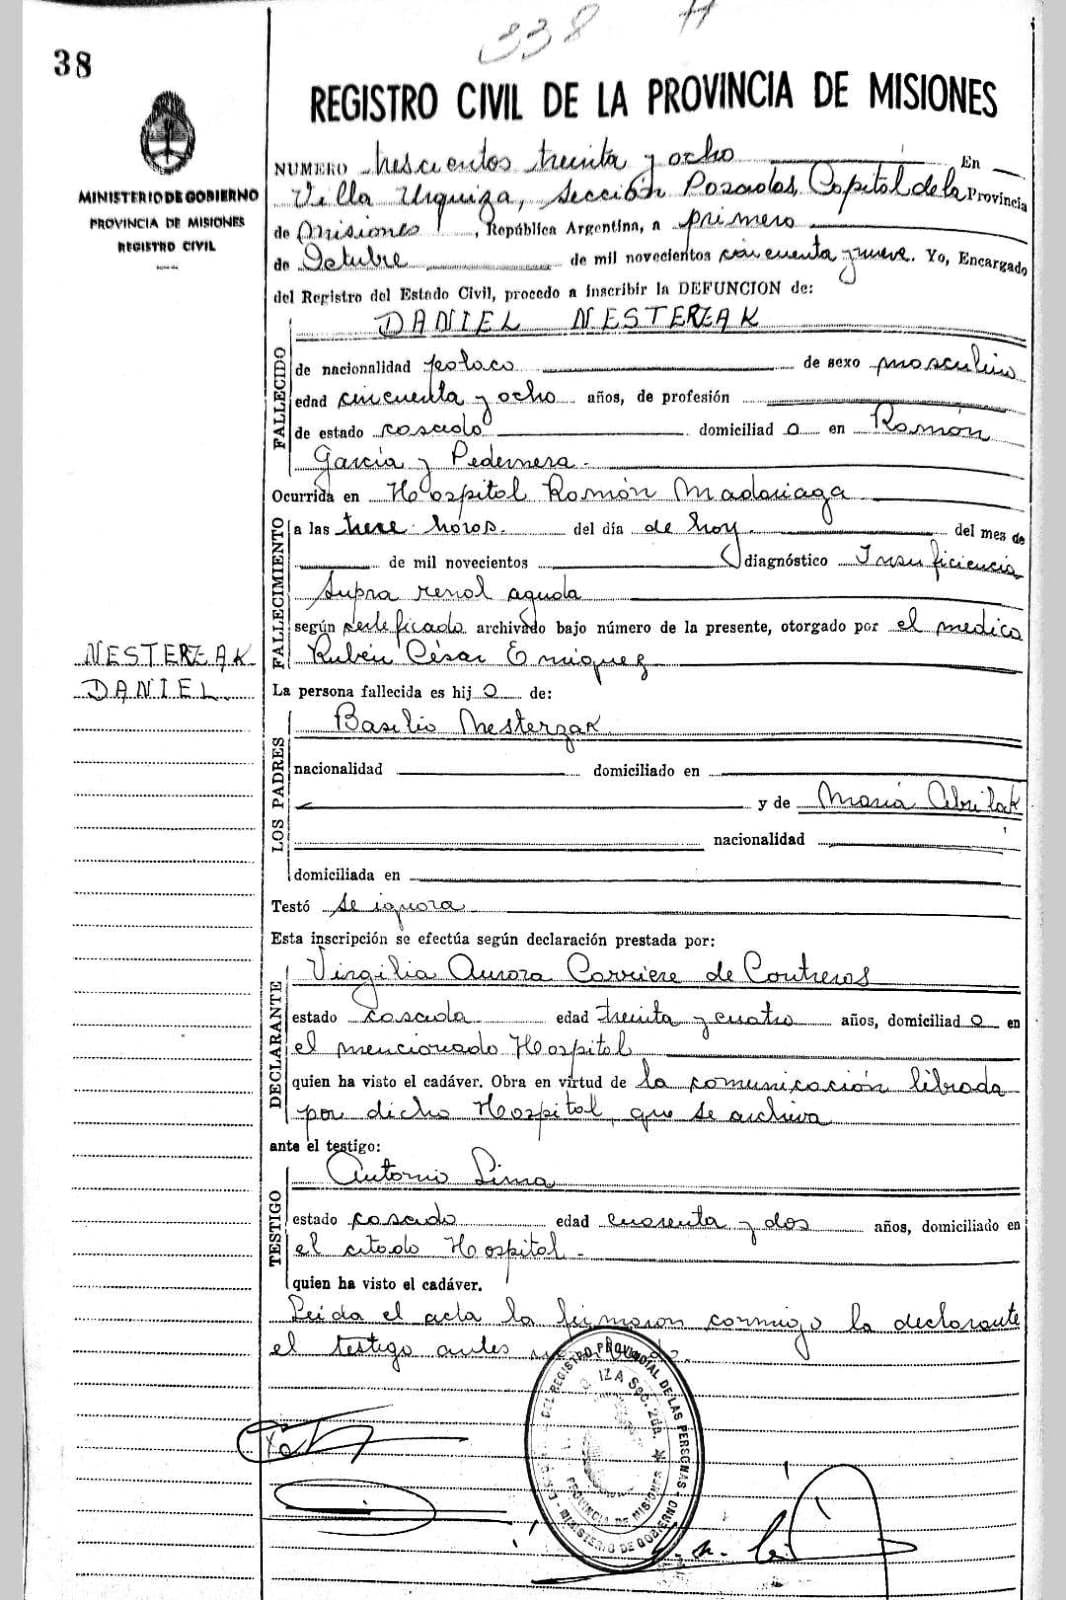 338
38
REGISTRO CIVIL DE LA PROVINCIA DE MISIONES
MINISTERIO DE GOBIERNO
PROVINCIA DE MISIONES
REGISTRO CIVIL
NUMERO trescientos treinta y ocho En
Villa Urquiza, Sección Posadas, Capital de la Provincia
de Misiones, República Argentina, a primero
de Octubre de mil novecientos cincuenta y nueve. Yo, Encargado
del Registro del Estado Civil, procedo a inscribir la DEFUNCION de:
FALLECIDO
DANIEL NESTERZAK
de nacionalidad polaco de sexo masculino
edad cincuenta y ocho años, de profesión
de estado casado domiciliad o en Ramón
García y Pedernera.-
Ocurrida en Hospital Ramón Madariaga
FALLECIMIENTO
a las trece horas. del día de hoy. del mes de
de mil novecientos diagnóstico Insuficiencia
Supra renal aguda
según certificado archivado bajo número de la presente, otorgado por el medico
Rubén César Enriquez
NESTERZAK
DANIEL
La persona fallecida es hij o de:
LOS PADRES
Basilio Nesterzak
nacionalidad domiciliado en
y de María Abrilak
nacionalidad
domiciliada en
Testó se ignora
Esta inscripción se efectúa según declaración prestada por:
DECLARANTE
Virgilia Aurora Carriere de Contreras
estado casada edad treinta y cuatro años, domiciliad o en
el mencionado Hospital
quien ha visto el cadáver. Obra en virtud de la comunicación librada
por dicho Hospital, que se archiva
ante el testigo:
TESTIGO
Antonio Lima
estado casado edad cuarenta y dos años, domiciliado en
el citado Hospital.-
quien ha visto el cadáver.
Leida el acta la firmaron conmigo la declarante
el testigo antes
DEL REGISTRO PROVINCIAL DE LAS PERSONAS
IZA Sec. 2da.
PROVINCIA DE MISIONES
MINISTERIO DE GOBIERNO